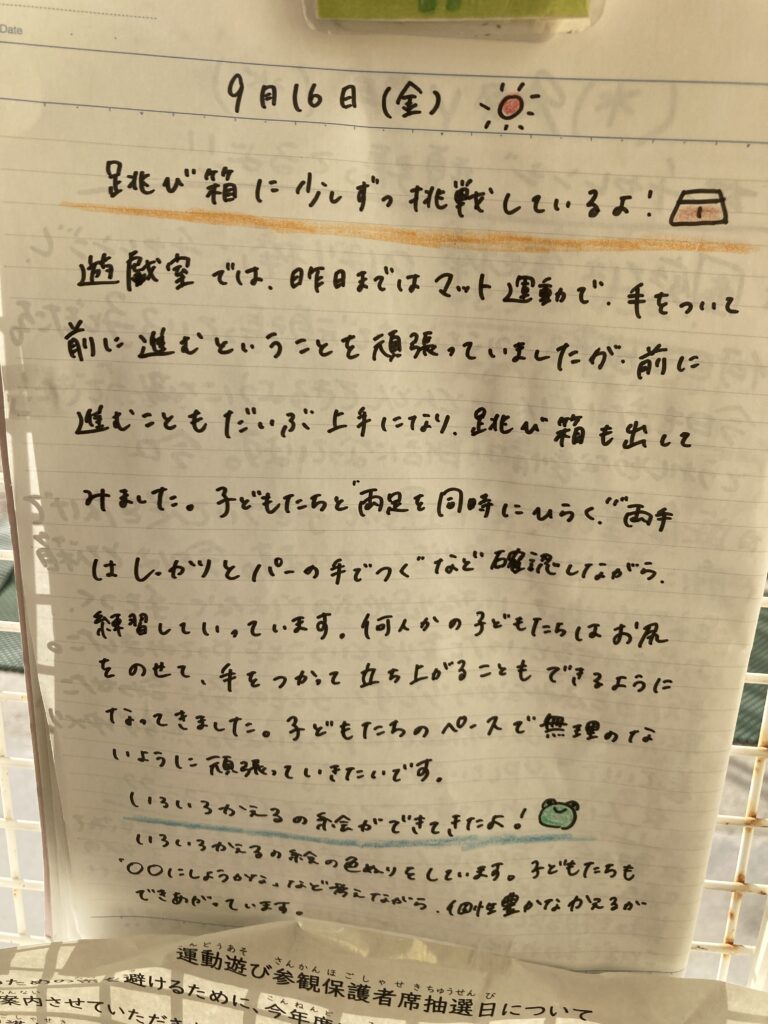 Date
9月16日(金)
跳び箱に少しずつ挑戦しているよ!
遊戯室では、昨日まではマット運動で、手をついて
前に進むということを頑張っていましたが、前に
進むこともだいぶ上手になり、跳び箱も出して
みました。子どもたちと"両足を同時にひらく""両手
はしっかりとパーの手でつく"など確認しながら、
練習していっています。何人かの子どもたちはお尻
をのせて、手をつかって立ち上がることもできるように
なってきました。子どもたちのペースで無理のな
いように頑張っていきたいです。
いろいろかえるの絵ができてきたよ!
いろいろかえるの絵の色ぬりをしています。子どもたちも
"〇〇にしようかな"など考えながら、個性豊かなかえるが
できあがっています。
運動遊び参観保護者席抽選日について
を避けるために、今年度
案内させていただき